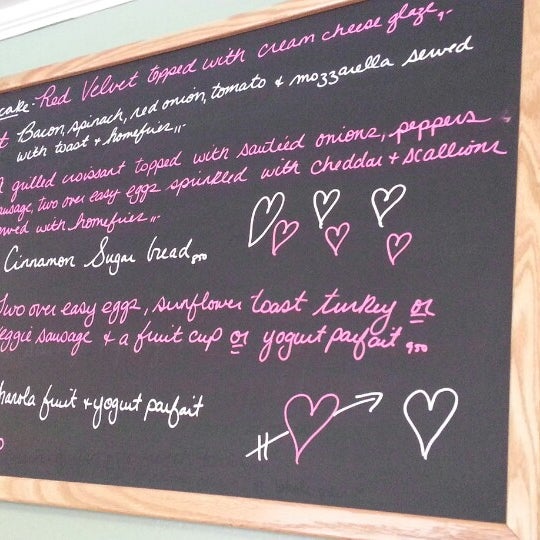 cake - Red Velvet topped with cream cheese glaze
Bacon, spinach, red onion, tomato + mozzarella served
with toast + homefries
grilled croissant topped with sautéed onions, peppers
sausage, two over easy eggs sprinkled with cheddar + scallions
served with homefries
Cinnamon Sugar bread
Two over easy eggs, sunflower toast turkey or
veggie sausage + a fruit cup or yogurt parfait 950
Granola fruit + yogurt parfait